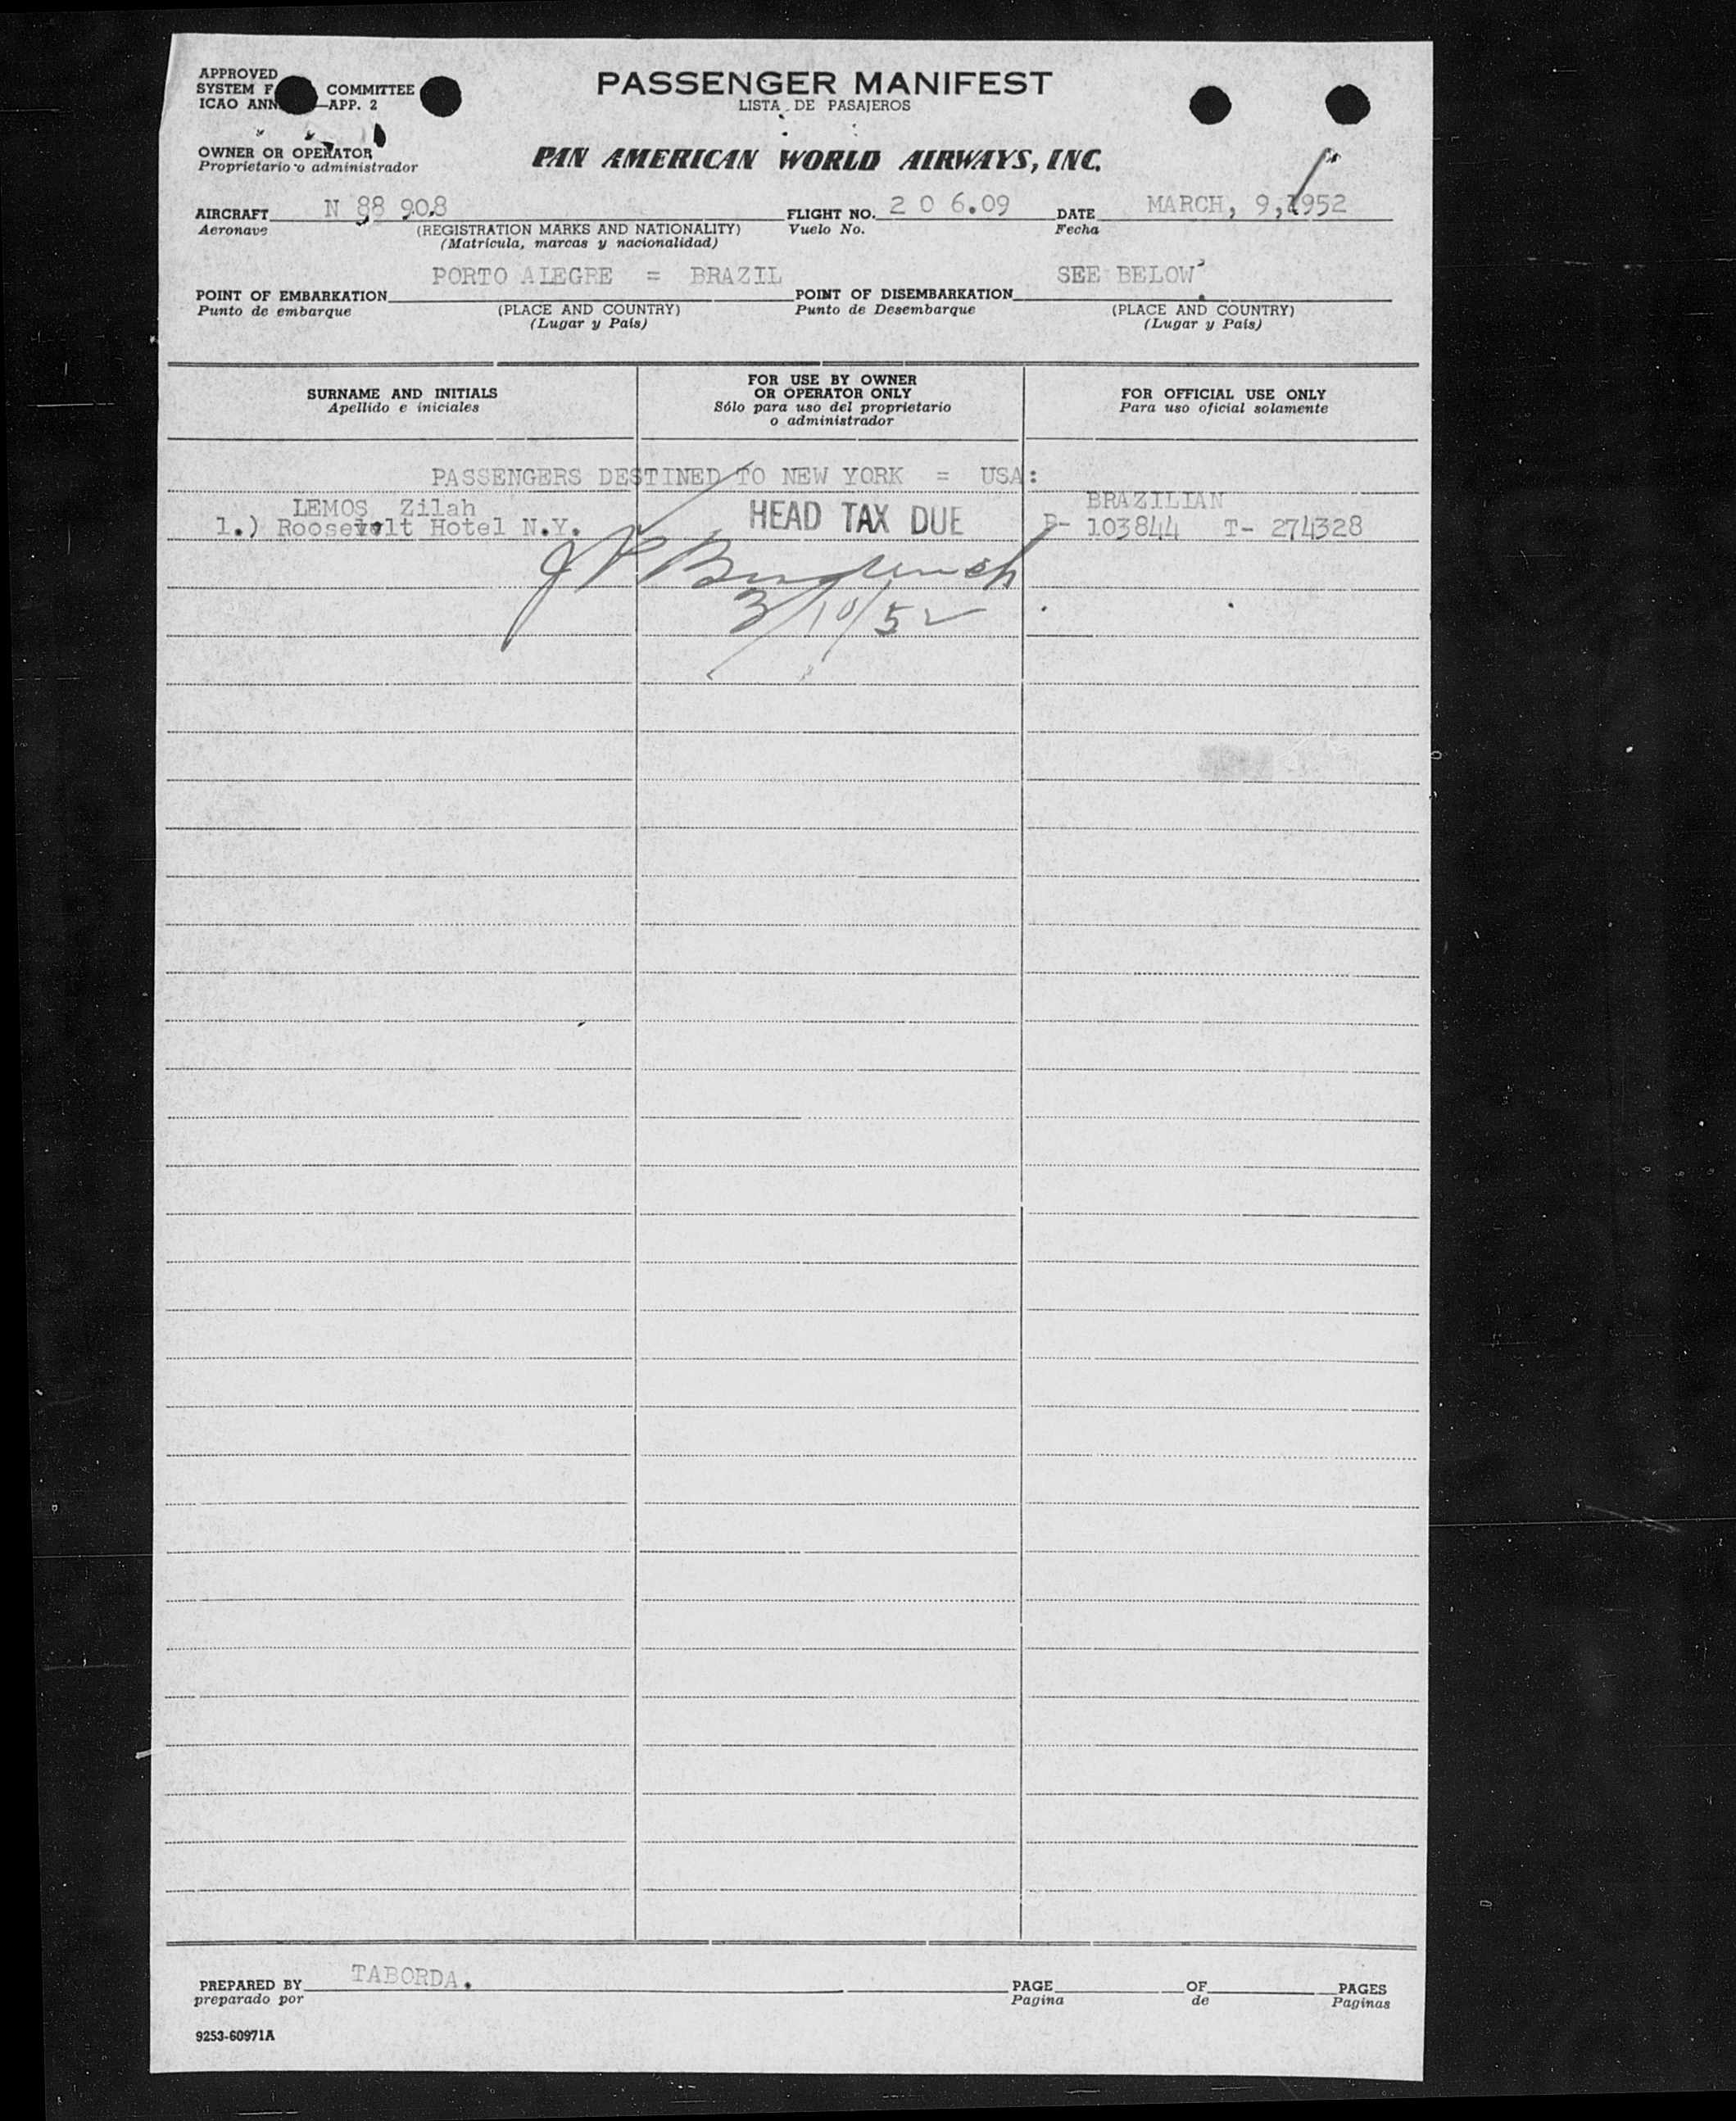 APPROVED
SYSTEM F COMMITTEE
ICAO ANN —APP. 2
PASSENGER MANIFEST
LISTA DE PASAJEROS
OWNER OR OPERATOR
Proprietario o administrador
PAN AMERICAN WORLD AIRWAYS, INC.
AIRCRAFT N 88 908 FLIGHT NO. 2 0 6.09 DATE MARCH, 9, 1952
Aeronave (REGISTRATION MARKS AND NATIONALITY) Vuelo No. Fecha
(Matrícula, marcas y nacionalidad)
PORTO ALEGRE = BRAZIL SEE BELOW
POINT OF EMBARKATION POINT OF DISEMBARKATION
Punto de embarque (PLACE AND COUNTRY) Punto de Desembarque (PLACE AND COUNTRY)
(Lugar y País) (Lugar y País)
SURNAME AND INITIALS
Apellido e iniciales
FOR USE BY OWNER
OR OPERATOR ONLY
Sólo para uso del proprietario
o administrador
FOR OFFICIAL USE ONLY
Para uso oficial solamente
PASSENGERS DESTINED TO NEW YORK = USA:
LEMOS, Zilah BRAZILIAN
1.) Roosevelt Hotel N.Y. HEAD TAX DUE P- 103844 T- 274328
3/10/52
PREPARED BY TABORDA. PAGE OF PAGES
preparado por Pagina de Paginas
9253-60971A